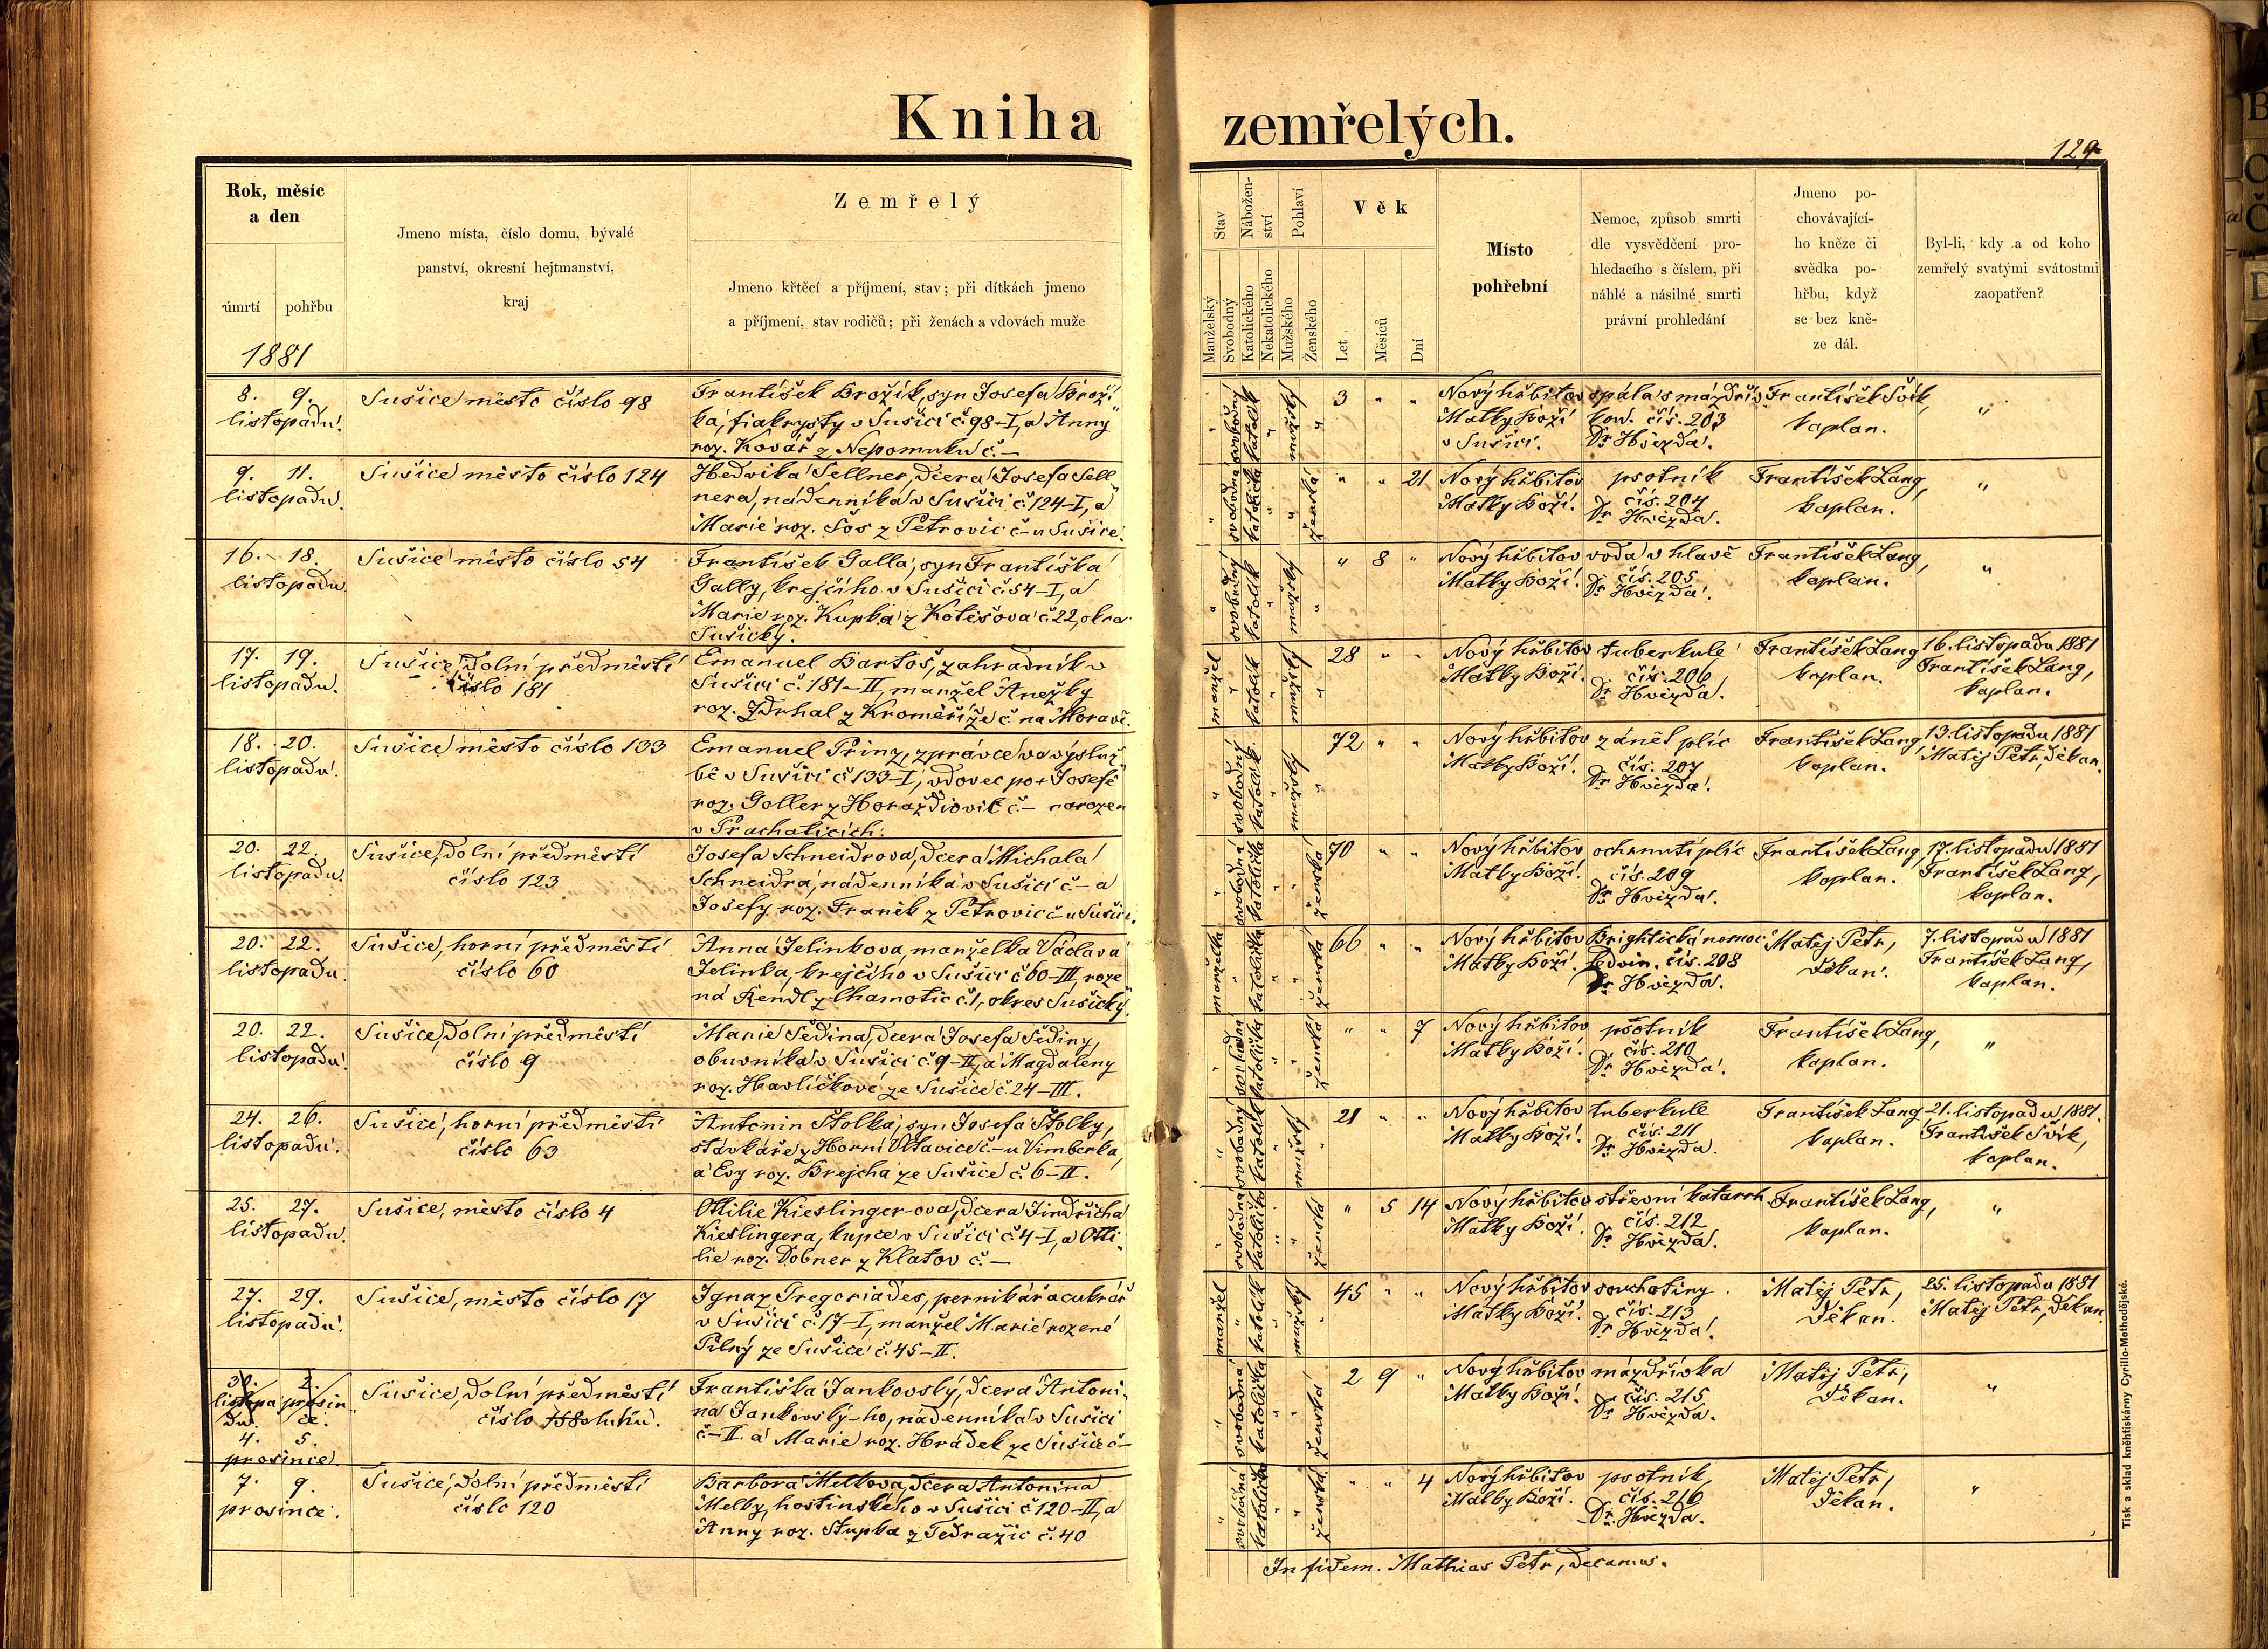 Kniha zemřelých.
129
Rok, měsíc
a den
úmrtí
pohřbu
1881
Jmeno místa, číslo domu, bývalé
panství, okresní hejtmanství,
kraj
Zemřelý
Jmeno křtěcí a příjmení, stav; při dítkách jmeno
a příjmení, stav rodičů; při ženách a vdovách muže
Stav
Nábožen-
ství
Pohlaví
Manželský
Svobodný
Katolického
Nekatolického
Mužského
Ženského
Věk
Let
Měsíců
Dní
Místo
pohřební
Nemoc, způsob smrti
dle vysvědčení pro-
hledacího s číslem, při
náhlé a násilné smrti
právní prohledání
Jmeno po-
chovávající-
ho kněze či
svědka po-
hřbu, když
se bez kně-
ze dál.
Byl-li, kdy a od koho
zemřelý svatými svátostmi
zaopatřen?
8. 9.
listopadu.
Sušice město číslo 98
František Brožík, syn Josefa Broží
ka, fiakrysty v Sušici č. 98-I, a Anny
roz. Kovář z Nepomuku č. —
" svobodný katolík " mužský "
3 " "
Nový hřbitov
Matky Boží
v Sušici.
spála s mázdřiv
kou. čís. 203
Dr Hvězda.
František Svik,
kaplan.
"
9. 11.
listopadu.
Sušice město číslo 124
Hedvika Sellner, dcera Josefa Sell
nera, nádenníka v Sušici č. 124-I, a
Marie roz. Šos z Petrovic č- u Sušice.
" svobodná katolička " " ženská
" " 21
Nový hřbitov
Matky Boží.
psotník
čís. 204
Dr Hvězda.
František Lang,
kaplan.
"
16. 18.
listopadu
Sušice město číslo 54
František Galla, syn Františka
Gally, krejčího v Sušici č. 54-I, a
Marie roz. Kupka z Kotěšova č. 22, okra
Sušický.
" svobodný katolík " mužský "
" 8 "
Nový hřbitov
Matky Boží.
voda v hlavě
čís. 205
Dr Hvězda.
František Lang,
kaplan.
"
17. 19.
listopadu.
Sušice, dolní předměstí
číslo 181
Emanuel Bartoš, zahradník v
Sušici č. 181-II, manžel Anežky
roz. Zdrhal z Kroměříže č. na Moravě.
manžel " katolík " mužský "
28 " "
Nový hřbitov
Matky Boží.
tuberkule
čís. 206
Dr Hvězda.
František Lang
kaplan.
16. listopadu 1881
František Lang,
kaplan.
18. 20.
listopadu.
Sušice město číslo 133
Emanuel Prinz, zprávce ve výsluž
bě v Sušici č. 133-I, vdovec po + Josefě
roz. Goller z Horažďovic č.- narozen
v Prachaticích.
" svobodný katolík " mužský "
72 " "
Nový hřbitov
Matky Boží.
zánět plic
čís. 207
Dr Hvězda.
František Lang
kaplan.
13. listopadu 1881
Matěj Petr, děkan.
20. 22.
listopadu.
Sušice, dolní předměstí
číslo 123
Josefa Schneidrova, dcera Michala
Schneidra, nádenníka v Sušici č.- a
Josefy roz. Franěk z Petrovic č- u Sušice.
" svobodná katolička " " ženská
70 " "
Nový hřbitov
Matky Boží.
ochrnutí plic
čís. 209
Dr Hvězda.
František Lang
kaplan.
17. listopadu 1881
František Lang,
kaplan.
20. 22.
listopadu
Sušice, horní předměstí
číslo 60
Anna Jelinkova, manželka Václava
Jelinka, krejčího v Sušici č. 60-III, roze
ná Rendl z Chamotic č. 1, okres Sušický.
manželka " katolička " " ženská
66 " "
Nový hřbitov
Matky Boží.
Brightická nemoc
ledvin. čís. 208
Dr Hvězda.
Matěj Petr,
děkan.
7. listopadu 1881
František Lang,
kaplan.
20. 22.
listopadu.
Sušice, dolní předměstí
číslo 9
Marie Šedina, dcera Josefa Šediny,
obuvníka v Sušici č. 9-II, a Magdaleny
roz. Havlíčkové ze Sušice č. 24-III.
" svobodná katolička " " ženská
" " 7
Nový hřbitov
Matky Boží.
psotník
čís. 210
Dr Hvězda.
František Lang,
kaplan.
"
24. 26.
listopadu.
Sušice, horní předměstí
číslo 63
Antonin Stolka, syn Josefa Stolky,
stávkáře z Horní Vltavice č.- u Vimberka,
a Evy roz. Brejcha ze Sušice č. 6-II.
" svobodný katolík " mužský "
21 " "
Nový hřbitov
Matky Boží.
tuberkule
čís. 211
Dr Hvězda.
František Lang
kaplan.
21. listopadu 1881.
František Svik,
kaplan.
25. 27.
listopadu.
Sušice, město číslo 4
Ottilie Kieslinger-ova, dcera Jindřicha
Kieslingera, kupce v Sušici č. 4-I, a Otti-
lie roz. Dobner z Klatov č. —
" svobodná katolička " " ženská
" 5 14
Nový hřbitov
Matky Boží.
střevní katarrh.
čís. 212
Dr Hvězda.
František Lang,
kaplan.
"
27. 29.
listopadu.
Sušice, město číslo 17
Ignaz Gregoriades, pernikář a cukrář
v Sušici č. 17-I, manžel Marie rozené
Pilný ze Sušice č. 45-II.
manžel " katolík " mužský "
45 " "
Nový hřbitov
Matky Boží.
souchotiny.
čís. 213
Dr Hvězda.
Matěj Petr,
děkan.
25. listopadu 1881
Matěj Petr, děkan.
30. 2.
listopa prosin
du. ce.
4. 5.
prosince.
Sušice, dolní předměstí
číslo
Františka Jankovský, dcera Antoni-
na Jankovský-ho, nádenníka v Sušici
č-II. a Marie roz. Hrádek ze Sušice č-
" svobodná katolička " " ženská
2 9 "
Nový hřbitov
Matky Boží.
mázdřivka
čís. 215
Dr Hvězda.
Matěj Petr,
děkan.
"
7. 9.
prosince.
Sušice, dolní předměstí
číslo 120
Barbora Melkova, dcera Antonina
Melky, hostinského v Sušici č. 120-II, a
Anny roz. Stupka z Tedražic č. 40
" svobodná katolička " " ženská
" " 4
Nový hřbitov
Matky Boží.
psotník
čís. 216
Dr. Hvězda.
Matěj Petr,
děkan.
"
In fidem. Mathias Petr, decanus.
Tisk a sklad kněhtiskárny Cyrillo-Methodějské.